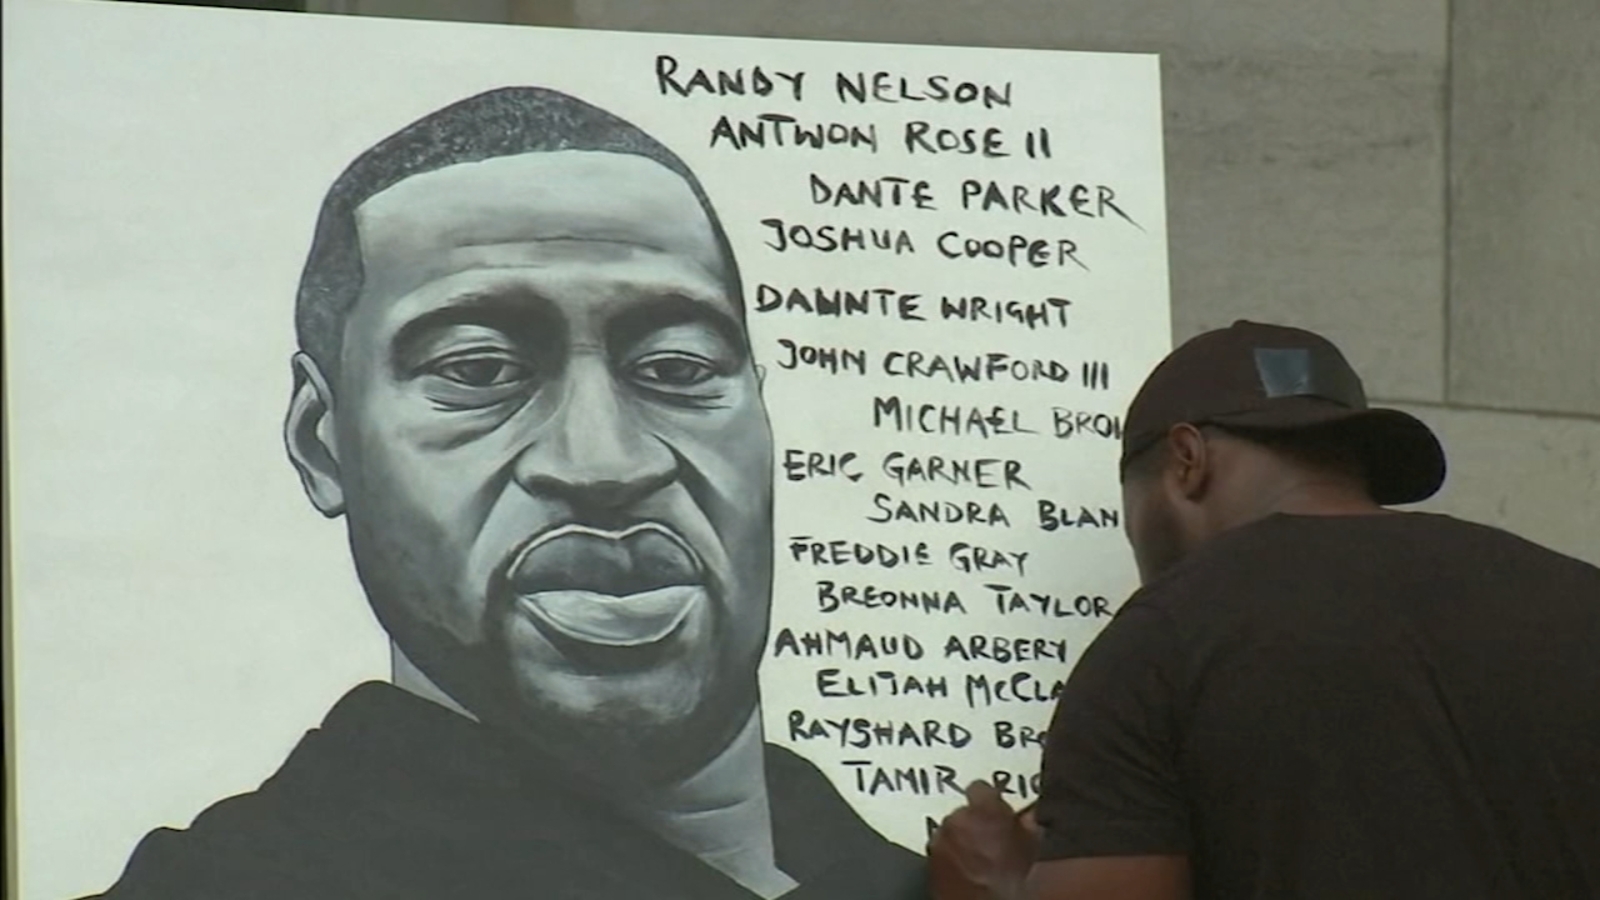 RANDY NELSON
ANTWON ROSE II
DANTE PARKER
JOSHUA COOPER
DAUNTE WRIGHT
JOHN CRAWFORD III
MICHAEL BROW
ERIC GARNER
SANDRA BLAN
FREDDIE GRAY
BREONNA TAYLOR
AHMAUD ARBERY
ELIJAH McCLA
RAYSHARD BRO
TAMIR RIC